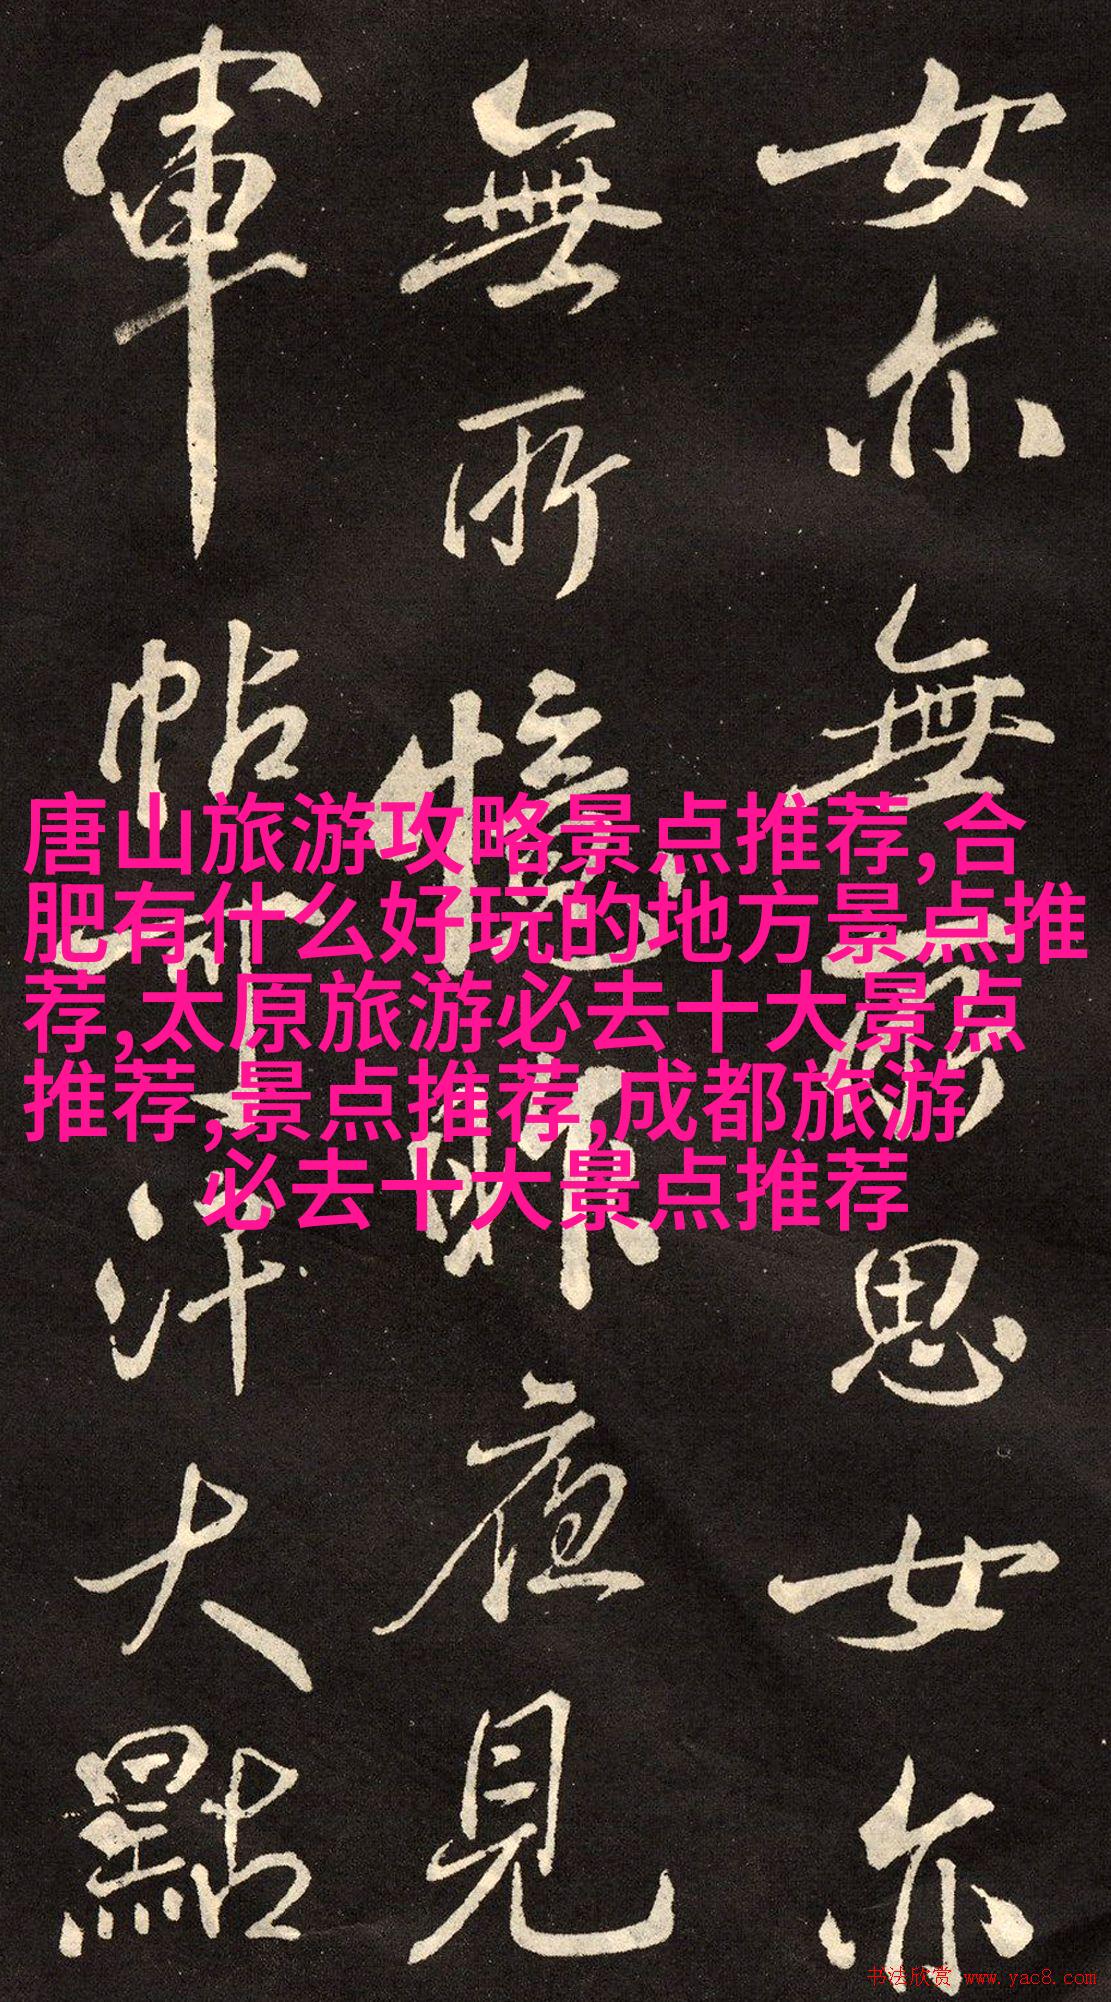 女亦無所思女亦
無所憶昨夜見
軍帖可汗大點
唐山旅游攻略景点推荐,合
肥有什么好玩的地方景点推
荐,太原旅游必去十大景点
推荐,景点推荐,成都旅游
必去十大景点推荐
书法欣赏 www.yac8.com